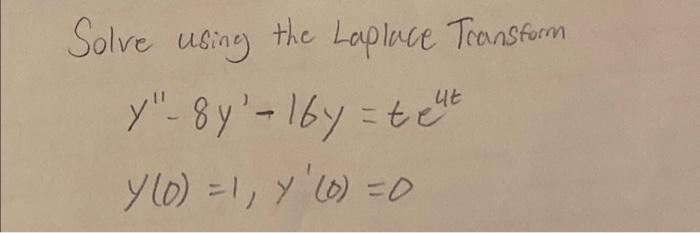 Solve using the Laplace Transform
y'' - 8y' - 16y = te^{4t}
y(0) = 1, y'(0) = 0